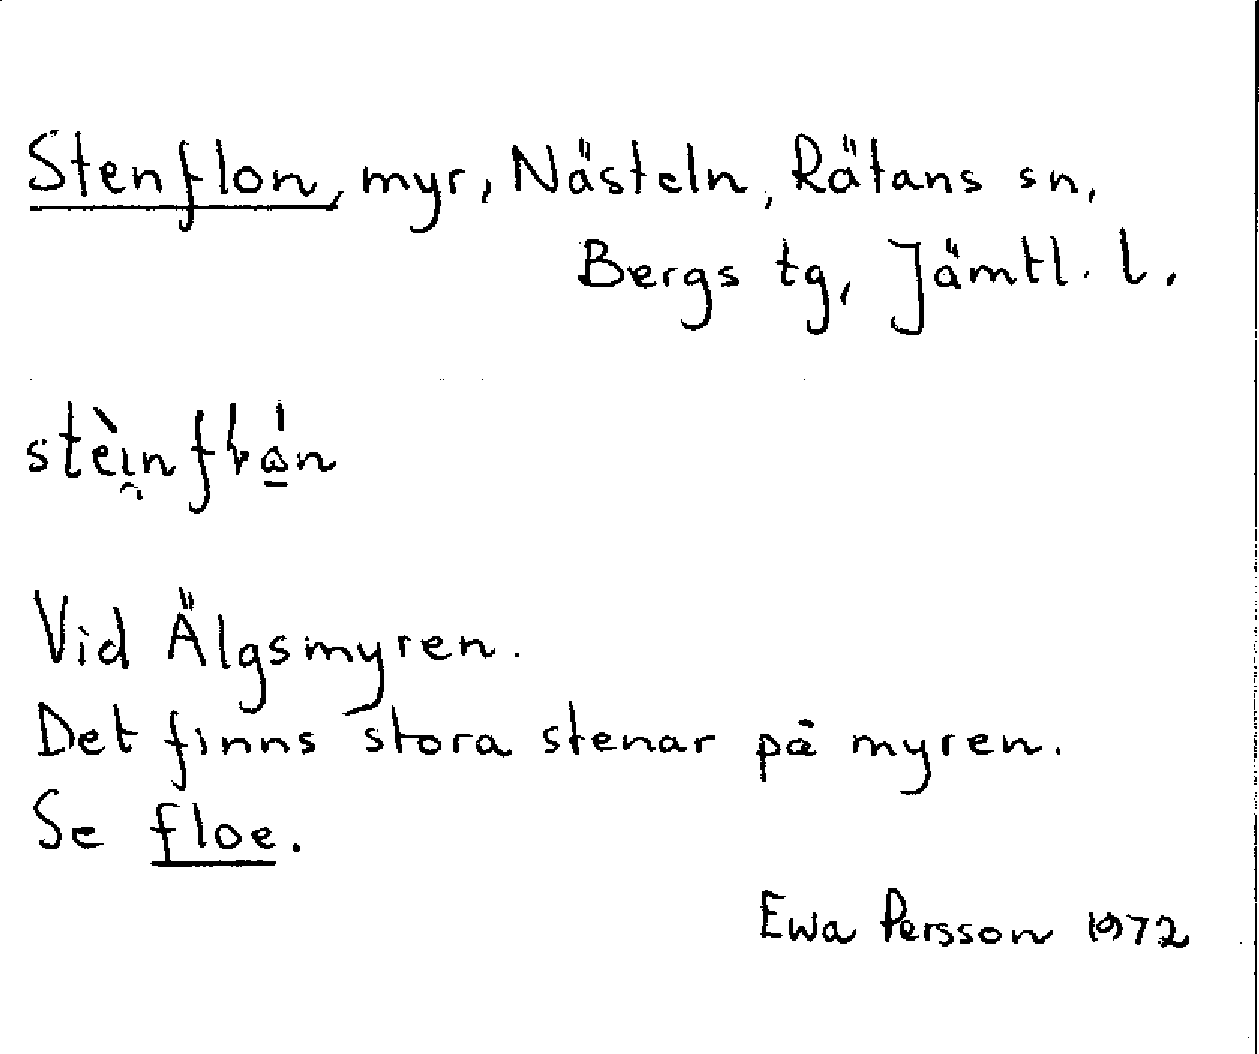 Stenflon, myr, Nästeln, Rätans sn,
Bergs tg, Jämtl. l.
Vid Älgsmyren.
Det finns stora stenar på myren.
Se floe.
Ewa Persson 1972